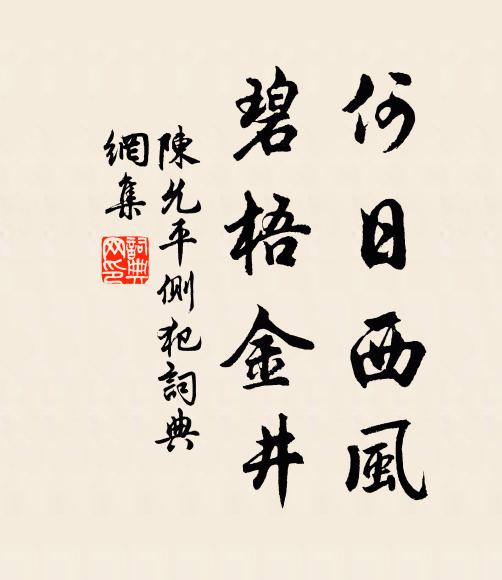 何日西風
碧梧金井
陳允平側犯詞典
網集
詞典網印